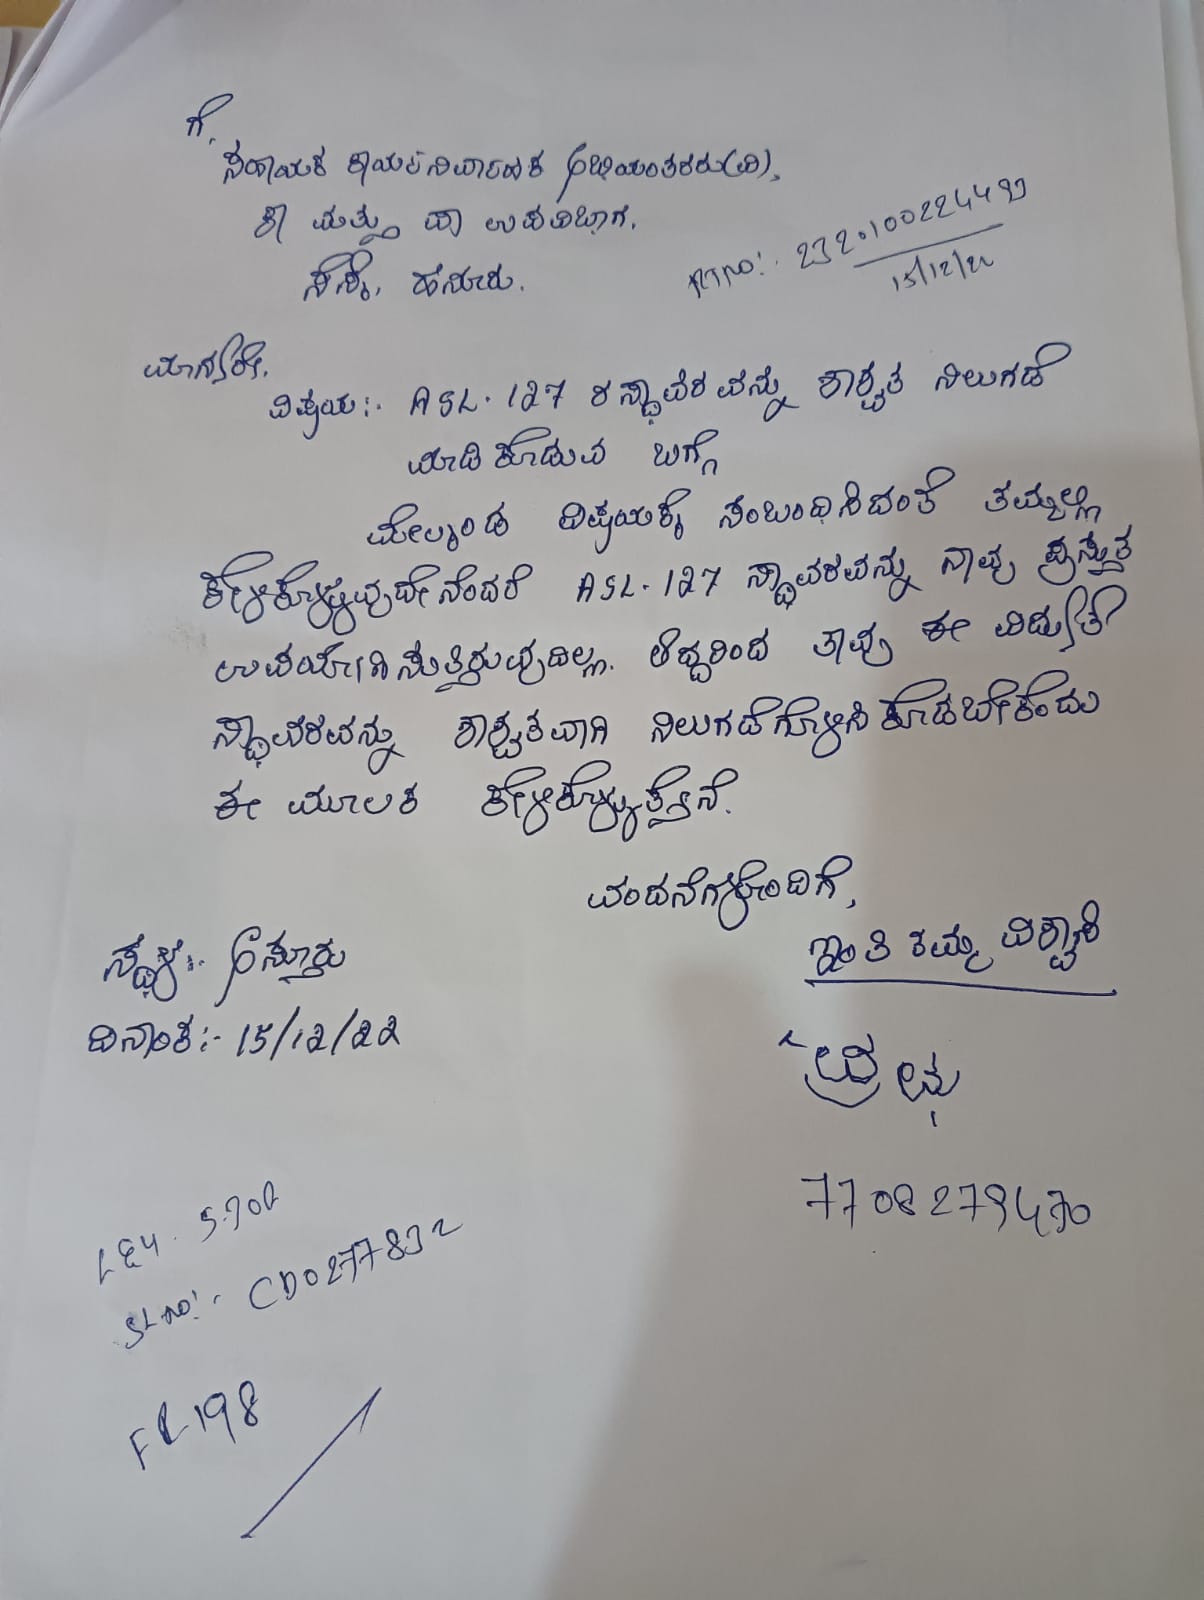 ಗೆ,
ಸಹಾಯಕ ಕಾರ್ಯನಿರ್ವಾಹಕ ಅಭಿಯಂತರರು(ವಿ),
ಕಾ ಮತ್ತು ಪಾ ಉಪವಿಭಾಗ.
ಸೆಸ್ಕ್, ಹನೂರು.
RTNO:- 2320100224492
15/12/22
ಮಾನ್ಯರೇ,
ವಿಷಯ:- ASL-127 ರ ಸ್ಥಾವರವನ್ನು ಶಾಶ್ವತ ನಿಲುಗಡೆ
ಮಾಡಿಕೊಡುವ ಬಗ್ಗೆ
ಮೇಲ್ಕಂಡ ವಿಷಯಕ್ಕೆ ಸಂಬಂಧಿಸಿದಂತೆ ತಮ್ಮಲ್ಲಿ
ಕೇಳಿಕೊಳ್ಳುವುದೇನೆಂದರೆ ASL-127 ಸ್ಥಾವರವನ್ನು ನಾವು ಪ್ರಸ್ತುತ
ಉಪಯೋಗಿಸುತ್ತಿರುವುದಿಲ್ಲ. ಆದ್ದರಿಂದ ತಾವು ಈ ವಿದ್ಯುತ್
ಸ್ಥಾವರವನ್ನು ಶಾಶ್ವತವಾಗಿ ನಿಲುಗಡೆಗೊಳಿಸಿಕೊಡಬೇಕೆಂದು
ಈ ಮೂಲಕ ಕೇಳಿಕೊಳ್ಳುತ್ತೇನೆ.
ವಂದನೆಗಳೊಂದಿಗೆ,
ಇಂತಿ ತಮ್ಮ ವಿಶ್ವಾಸಿ
ಸ್ಥಳ:-
ದಿನಾಂಕ:- 15/12/22
ಪ್ರಭು
7708279470
SL NO:- CD0277832
FR-198